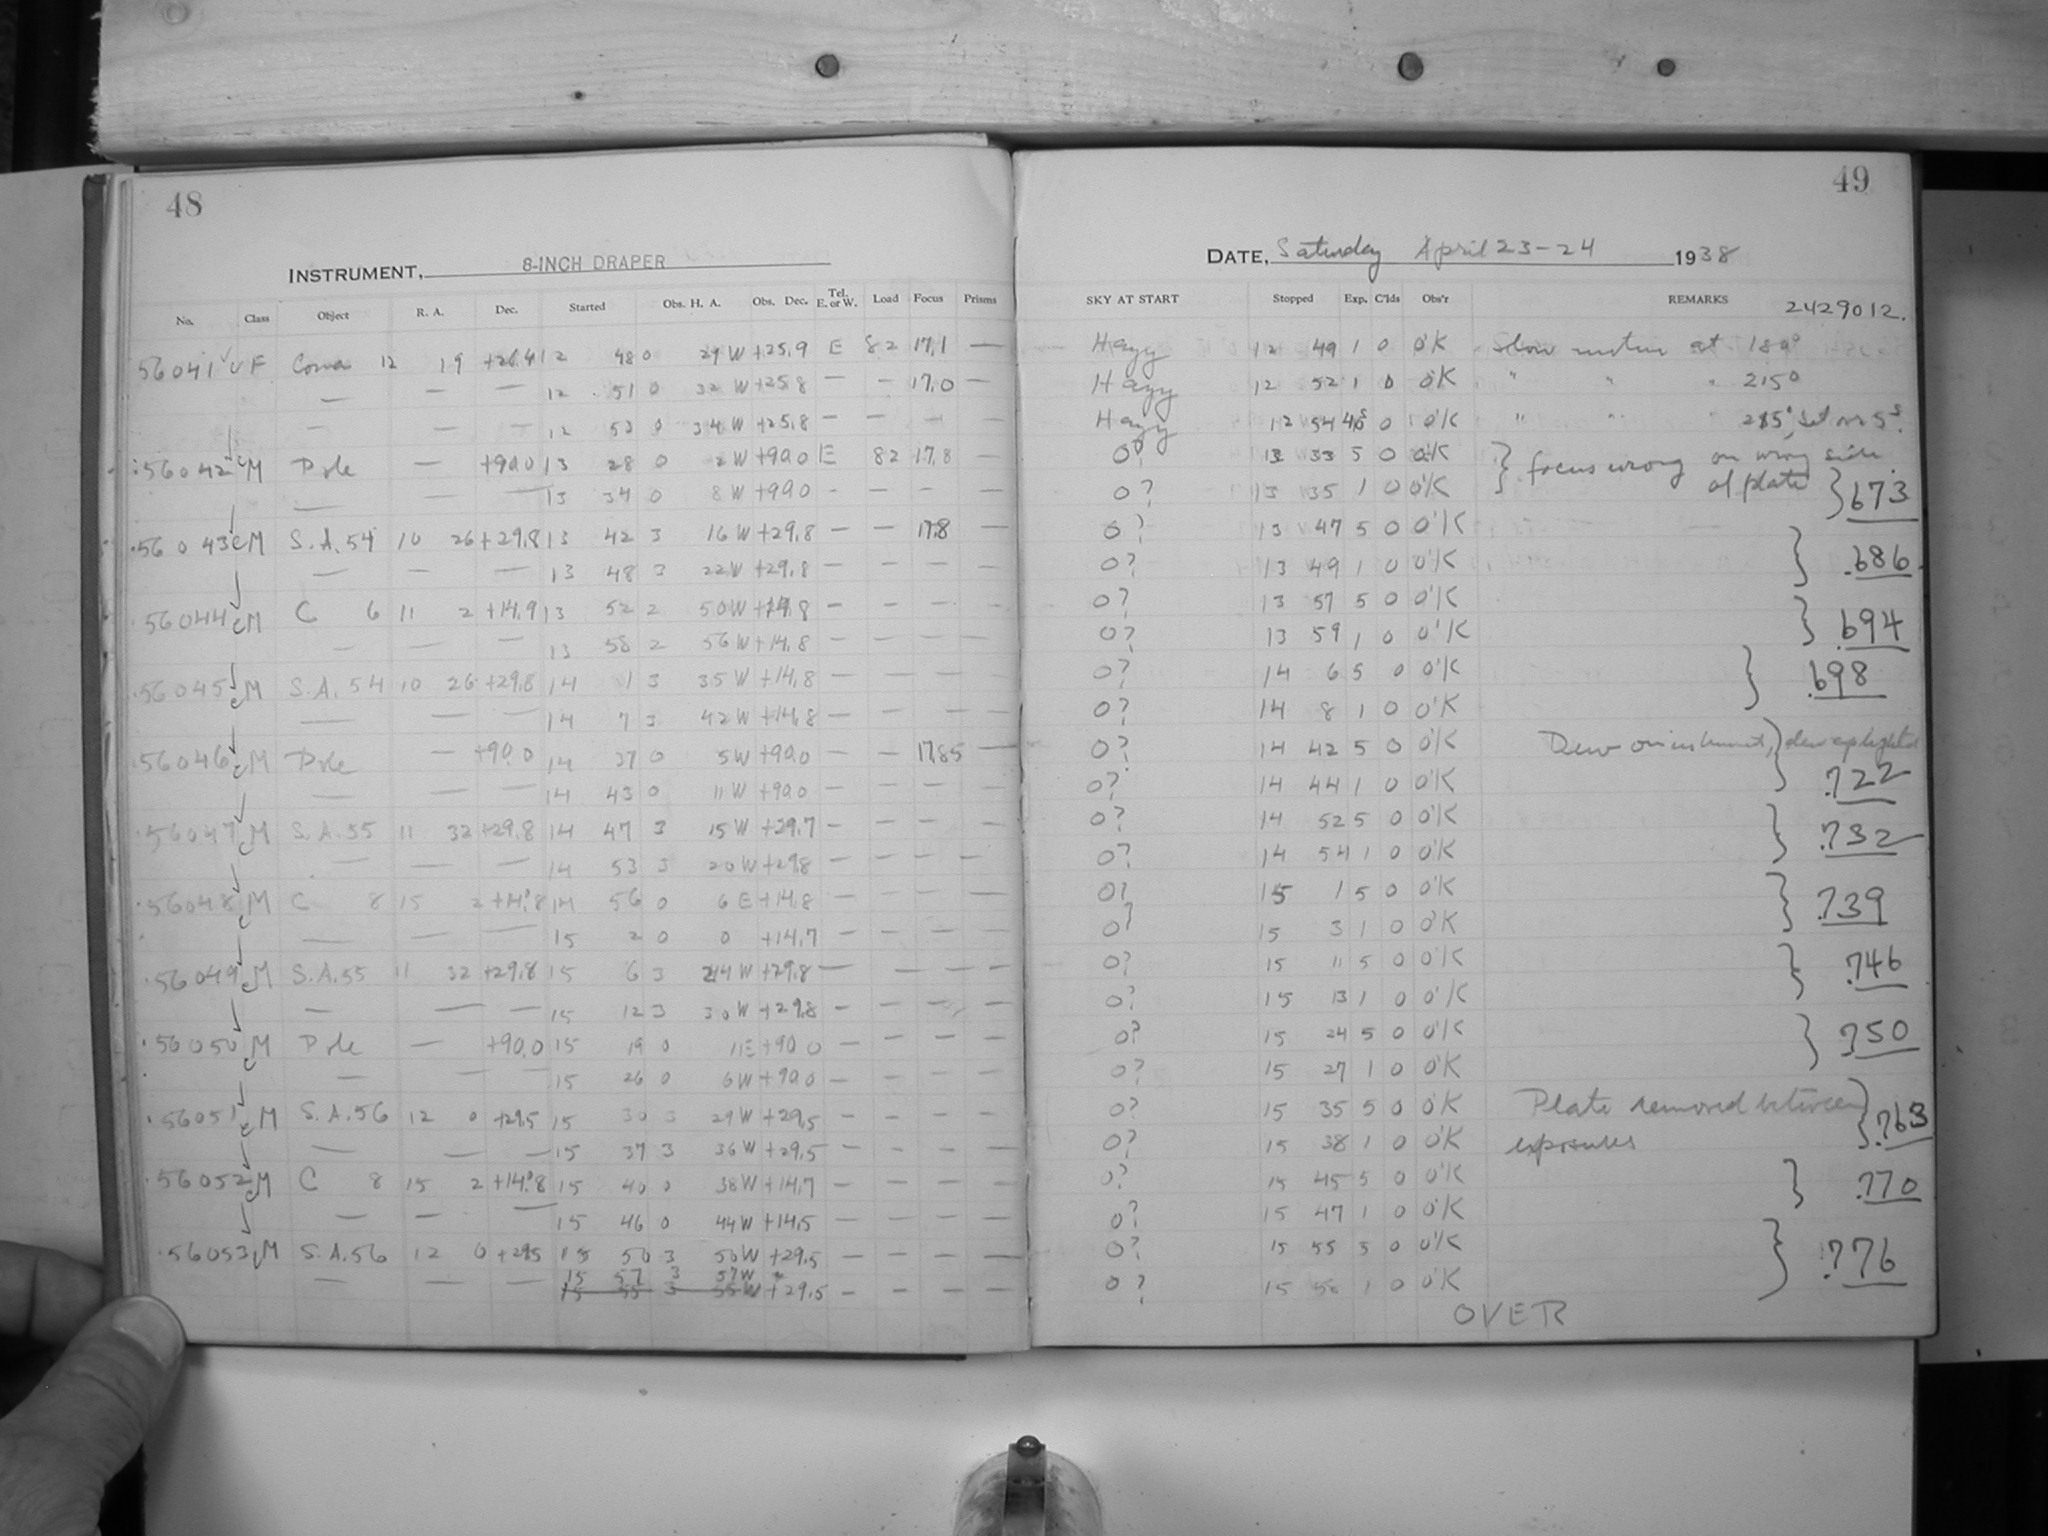 48
INSTRUMENT, 8-INCH DRAPER
No. Class Object R. A. Dec. Started Obs. H. A. Obs. Dec. Tel. E. or W. Load Focus Prisms
56041 F Coma 12 19 +26.4 12 48 0 29 W +25.9 E 82 17.1 —
— — — 12 51 0 32 W +25.8 — - 17.0 —
— — — 12 53 0 34 W +25.8 — — — —
56042 M Pole — +90.0 13 28 0 2 W +90.0 E 82 17.8 —
— — — 13 34 0 8 W +90.0 - - — —
56043 M S.A. 54 10 26 +29.8 13 42 3 16 W +29.8 — — 17.8 —
— — — 13 48 3 22 W +29.8 — — — —
56044 M C 6 11 2 +14.9 13 52 2 50 W +14.8 — — — —
— — — 13 58 2 56 W +14.8 — — — —
56045 M S.A. 54 10 26 +29.8 14 1 3 35 W +14.8 — — — —
— — — 14 7 3 42 W +14.8 — — — —
56046 M Pole — +90.0 14 37 0 5 W +90.0 — — 17.85 —
— — — 14 43 0 11 W +90.0 — — — —
56047 M S.A. 55 11 32 +29.8 14 47 3 15 W +29.7 — — — —
— — — 14 53 3 20 W +29.8 — — — —
56048 M C 8 15 2 +14.8 14 56 0 6 E +14.8 — — — —
— — — 15 2 0 0 +14.7 — — — —
56049 M S.A. 55 11 32 +29.8 15 6 3 24 W +29.8 — — — —
— — — 15 12 3 30 W +29.8 — — — —
56050 M Pole — +90.0 15 19 0 11 E +90.0 — — — —
— — — 15 26 0 6 W +90.0 — — — —
56051 M S.A. 56 12 0 +29.5 15 30 3 29 W +29.5 — — — —
— — — 15 37 3 36 W +29.5 — — — —
56052 M C 8 15 2 +14.8 15 40 0 38 W +14.7 — — — —
— — — 15 46 0 44 W +14.5 — — — —
56053 M S.A. 56 12 0 +29.5 15 50 3 50 W +29.5 — — — —
15 57 3 57 W
— — — 15 55 3 55 W +29.5 — — — —
49
DATE, Saturday April 23-24 1938
SKY AT START Stopped Exp. C'lds Obs'r REMARKS 2429012.
Hazy 12 49 1 0 O'K Slow motion at 180°
Hazy 12 52 1 0 O'K " " " 215°
Hazy 12 54 0 O'K " " " set on 5s.
0? 13 33 5 0 O'K } focus wrong on wrong side
0? 13 35 1 0 O'K of plate } .673
0? 13 47 5 0 O'K
0? 13 49 1 0 O'K } .686
0? 13 57 5 0 O'K
0? 13 59 1 0 O'K } .694
0? 14 6 5 0 O'K } .698
0? 14 8 1 0 O'K
0? 14 42 5 0 O'K Dew on instrument,
0? 14 44 1 0 O'K } .722
0? 14 52 5 0 O'K } .732
0? 14 54 1 0 O'K
0? 15 1 5 0 O'K } .739
0? 15 3 1 0 O'K
0? 15 11 5 0 O'K } .746
0? 15 13 1 0 O'K
0? 15 24 5 0 O'K } .750
0? 15 27 1 0 O'K
0? 15 35 5 0 O'K Plate removed between } .763
0? 15 38 1 0 O'K exposures
0? 15 45 5 0 O'K } .770
0? 15 47 1 0 O'K
0? 15 55 5 0 O'K } .776
0? 15 58 1 0 O'K
OVER